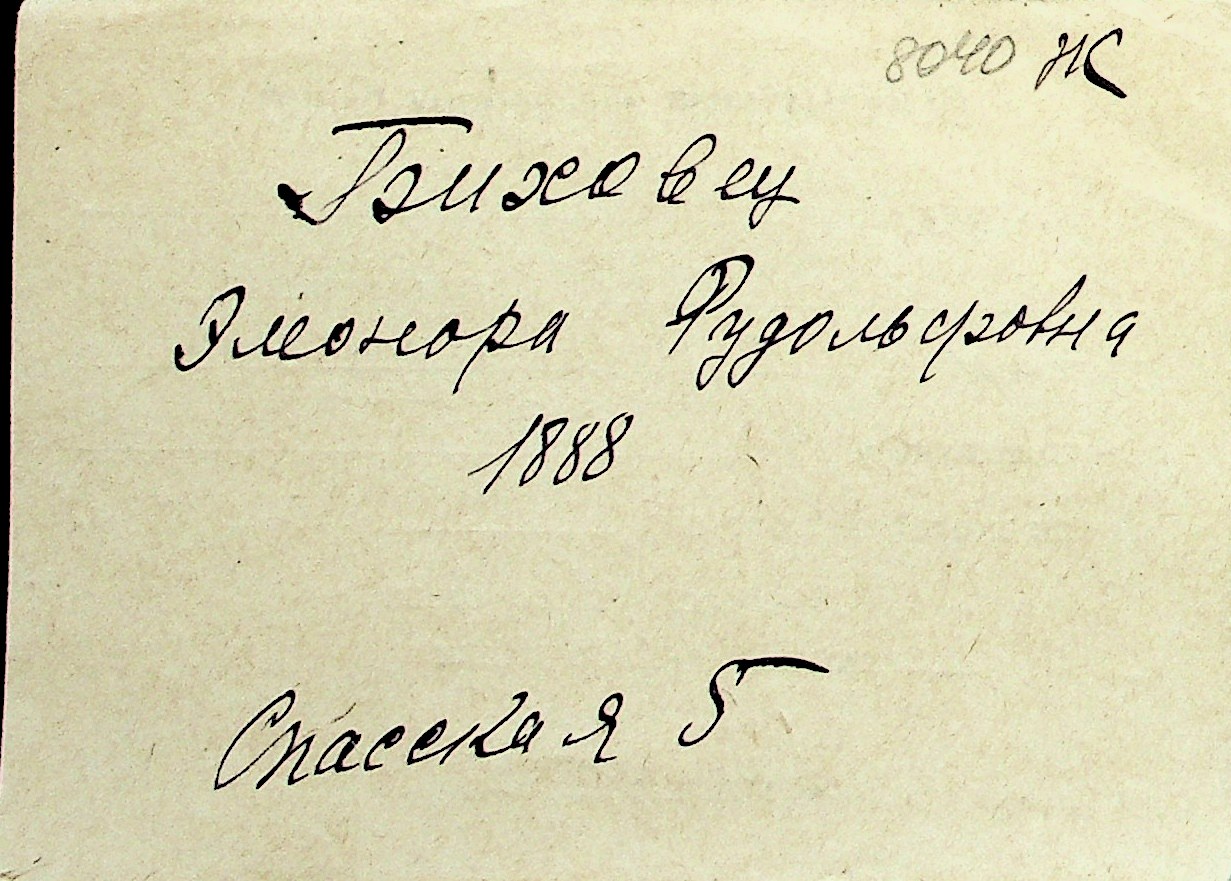 8040 Ж
Биховец
Элеонора Рудольфовна
1888
Спасская 5